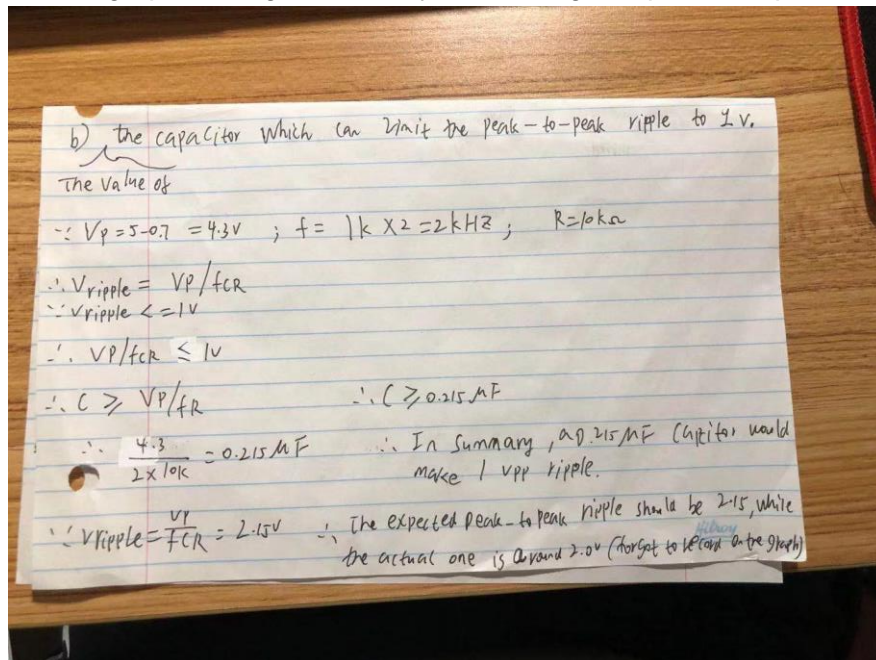 b) the capacitor which can limit the peak-to-peak ripple to 1 v.
The value of
∵ Vp = 5-0.7 = 4.3V ; f = 1k X2 = 2kHZ ; R=10kΩ
∴ Vripple = VP/fCR
∵ Vripple <= 1V
∴ VP/fCR ≤ 1V
∴ C ⩾ VP/fR
∴ C ⩾ 0.215 MF
∴ 4.3 / 2x10k = 0.215 MF
∴ In summary, a 0.215 MF capaitor would
make 1 vpp ripple.
∵ Vripple = VP/fCR = 2.15V
∴ The expected peak-to peak ripple should be 2.15, while
the actual one is around 2.0V (forgot to record on the graph)
Hilroy